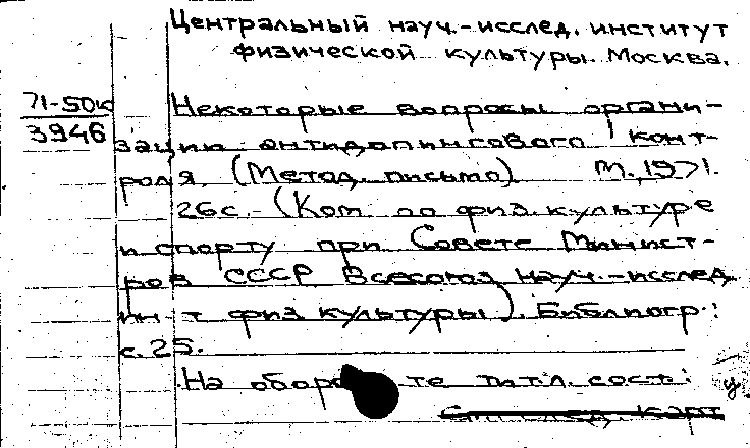 Центральный науч.-исслед. институт
физической культуры. Москва.
71-50к
3946
Некоторые вопросы органи-
зации антидопингового конт-
роля. (Метод. письмо) М., 1971.
26с. - (Ком. по физ. культуре
и спорту при Совете Минист-
ров СССР Всесоюз науч.-исслед
ин-т физ культуры). Библиогр.:
с. 25.
На оборо те титл. сост: